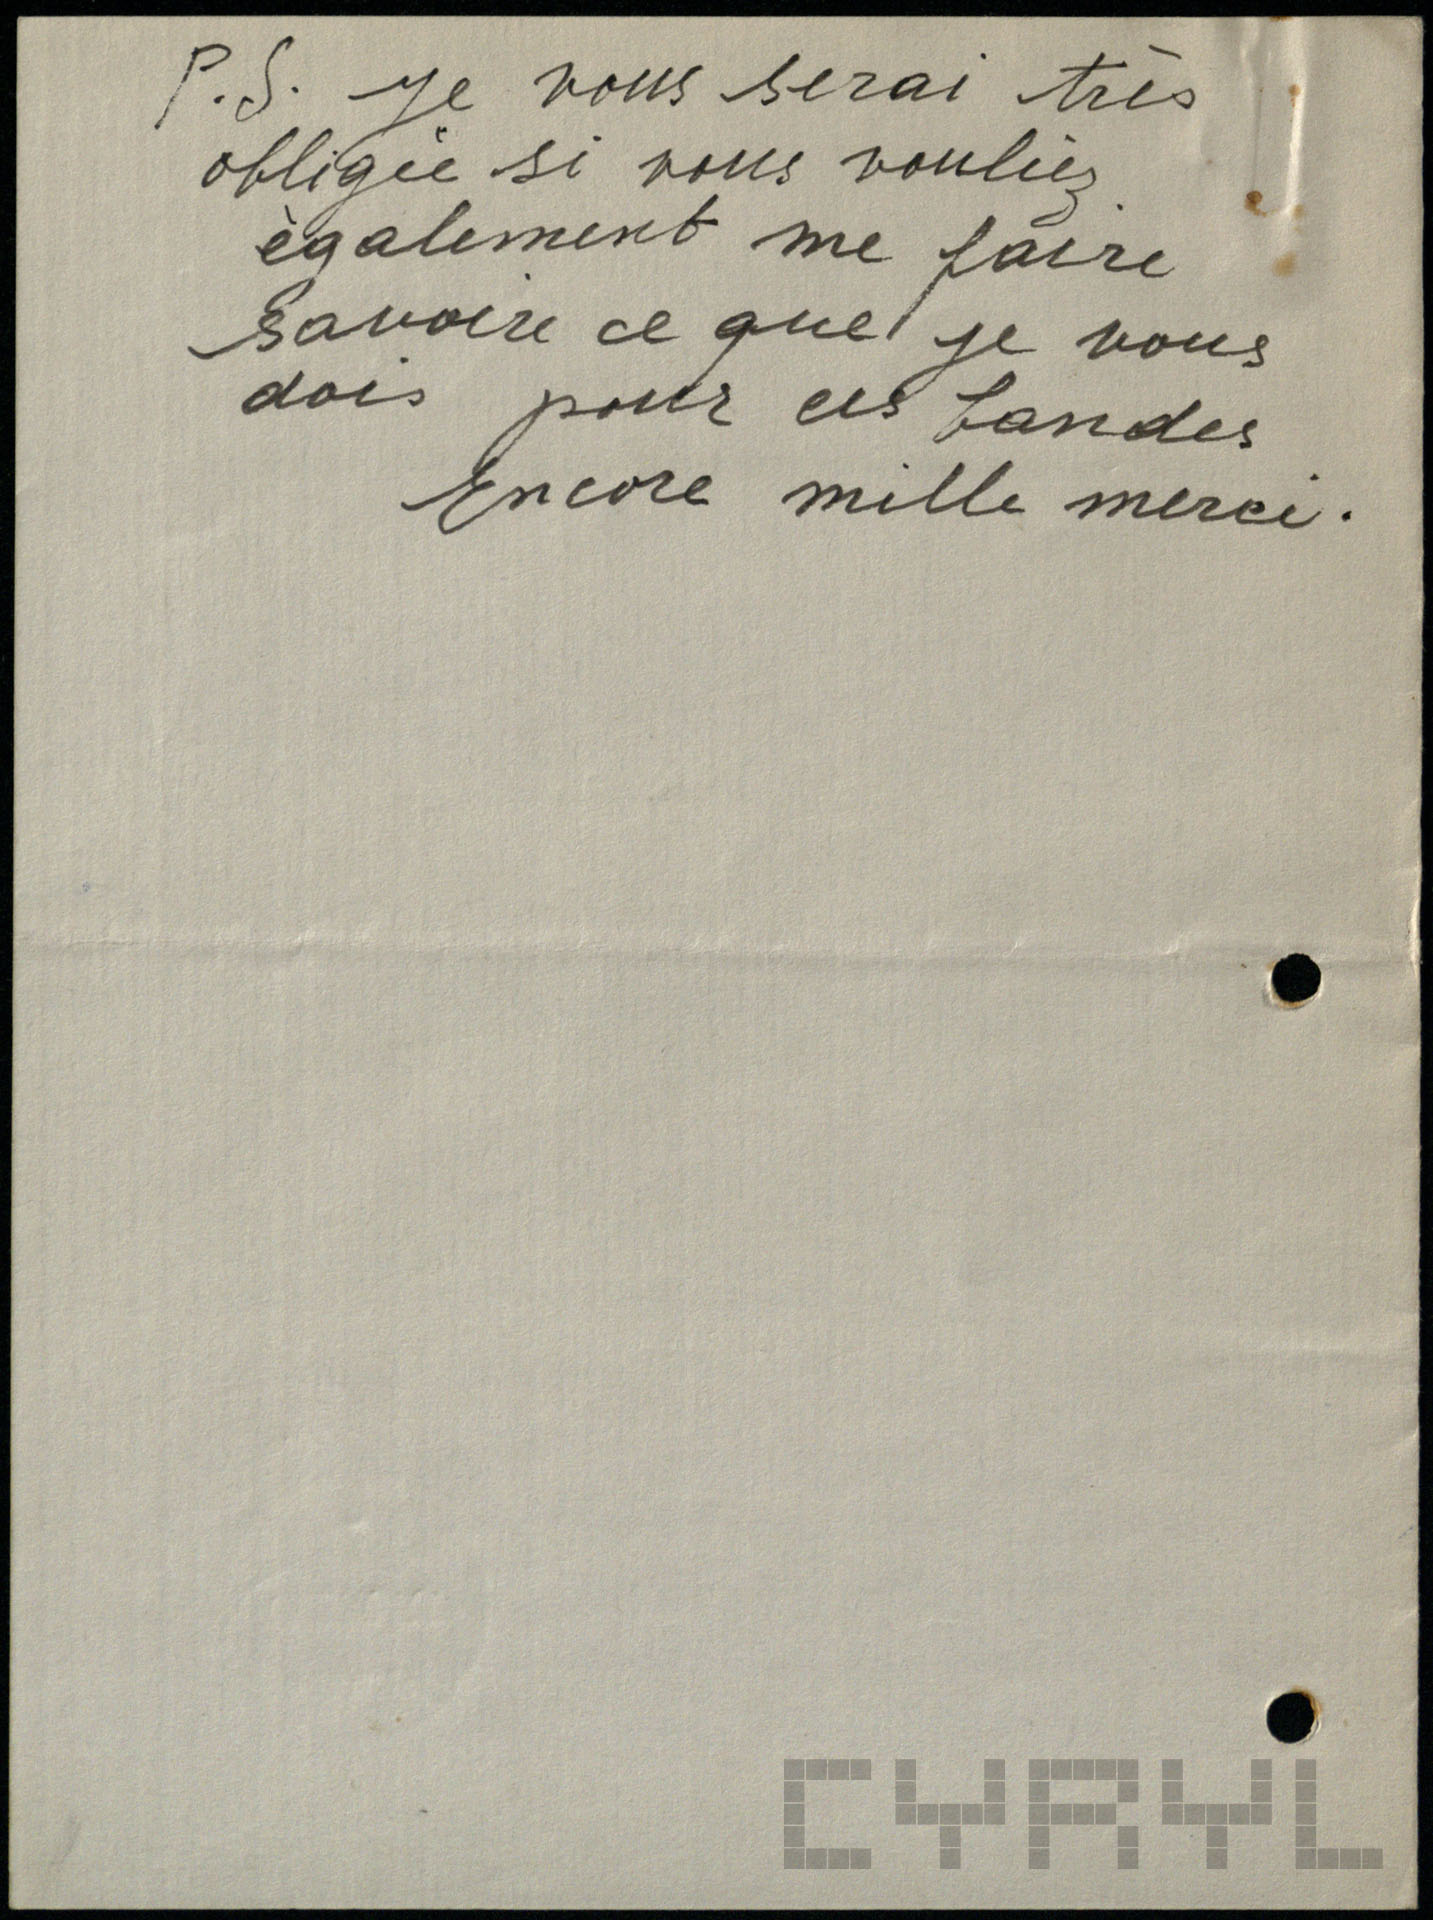 P.S. Je vous serai très
obligée si vous vouliez
également me faire
savoire ce que je vous
dois pour ces bandes
Encore mille merci.
CYRYL